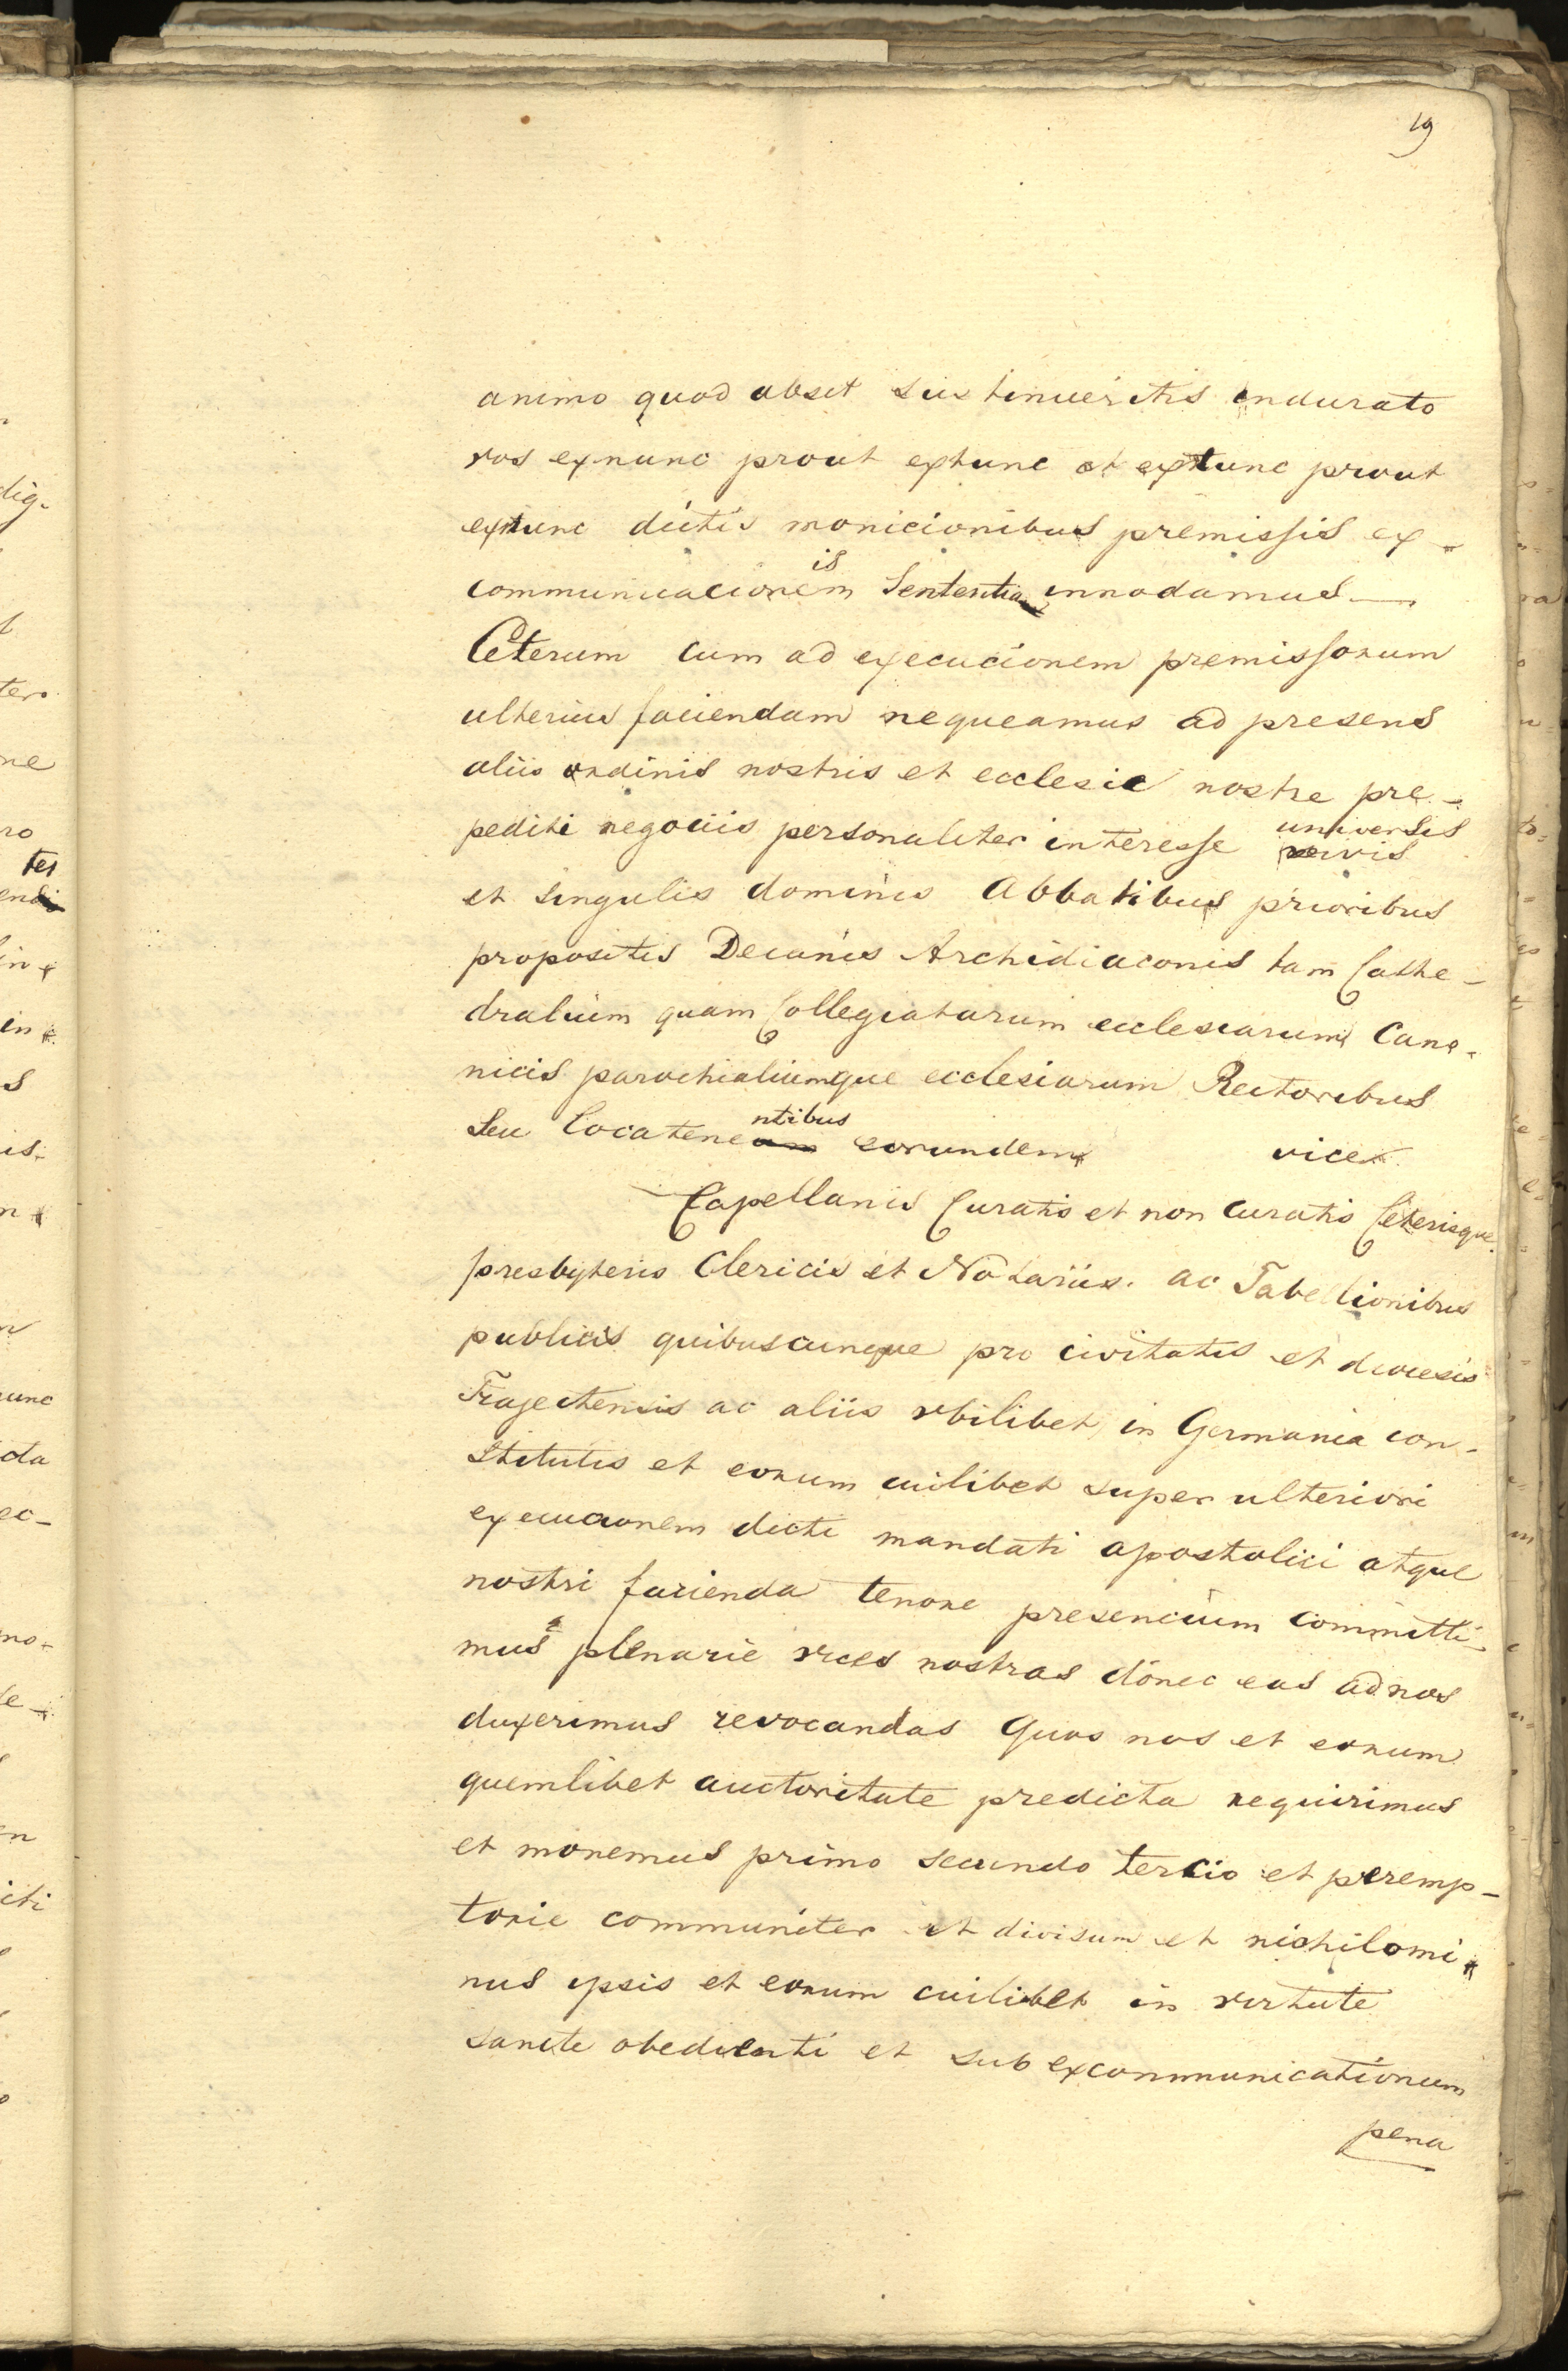 19
animo quod absit sustinueritis indurato
vos exnunc prout extunc et extunc prout
exnunc dictis monicionibus premissis ex-
communicacionis Sententia innodamus—
Ceterum cum ad execucionem premissorum
ulterius faciendam nequeamus ad presens
aliis ordinis nostris et ecclesie nostre pre-
pediti negociis personaliter interesse universis
et singulis dominis Abbatibus prioribus
propositis Decanis Archidiaconis tam Cathe-
dralium quam Collegiatarum ecclesiarum Cano-
nicis parochialiumque ecclesiarum Rectoribus
Seu Locatenentibus eorundem vice
Capellanis Curatis et non Curatis Ceterisque
presbyteris Clericis et Notariis. ac Tabellionibus
publicis quibuscunque pro civitatis et diocesis
Trajectensis ac aliis vbilibet in Germania con-
stitutis et eorum cuilibet super ulteriori
execucionem dicti mandati apostolici atque
nostri facienda tenore presencium committi-
mus plenarie vices nostras donec eas ad nos
duxerimus revocandas Quos nos et eorum
quemlibet auctoritate predicta requirimus
et monemus primo secundo tercio et peremp-
torie communiter et divisum et nichilomi-
nus ipsis et eorum cuilibet in virtute
sancte obedienti et sub excommunicationum
pena